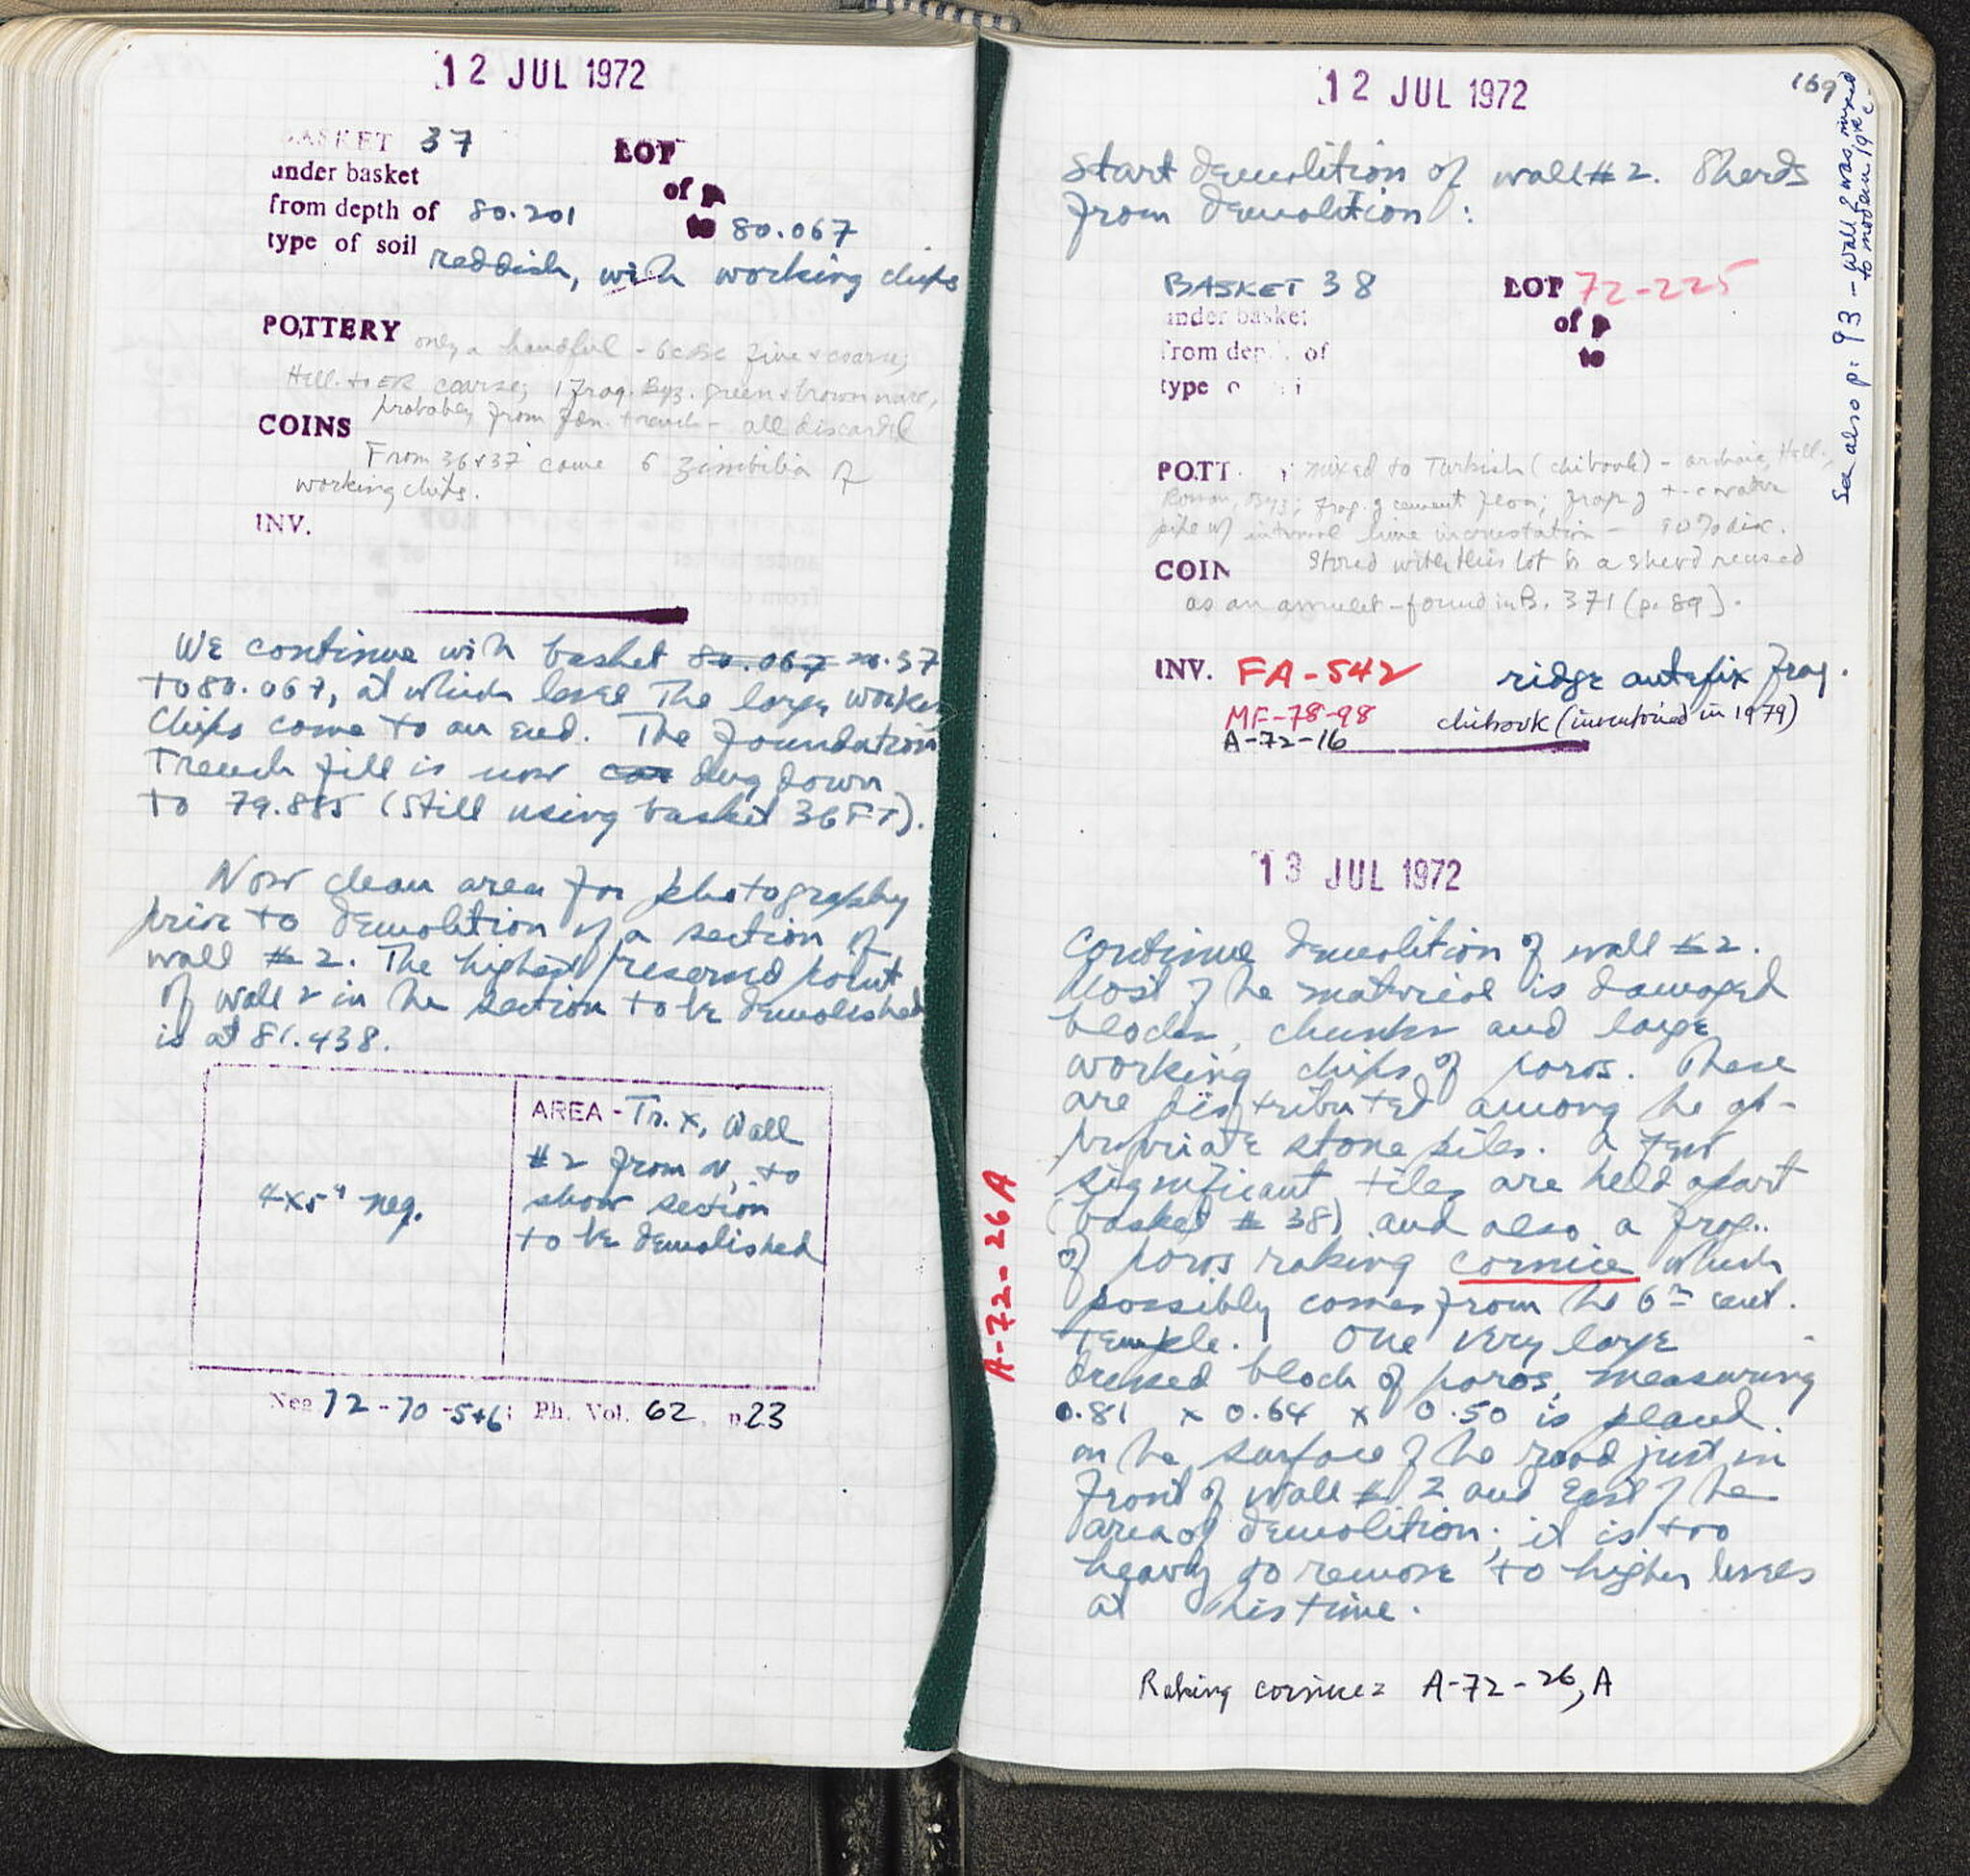 12 JUL 1972
BASKET 37 LOT
under basket of p
from depth of 80.201 to 80.067
type of soil reddish, with working chips
POTTERY only a handful - 6c BC fine & coarse,
Hell. to ER coarse; 1 frag. Byz. green & brown ware,
probably from fdn. trench - all discarded
COINS
From 36 & 37 come 6 zimbilia of
working chips.
INV.
We continue with basket 80.067 no. 37
to 80.067, at which level the large worker
chips come to an end. The foundation
Trench fill is now dug down
to 79.885 (still using basket 36 FT).
Now clean area for photography
prior to demolition of a section of
wall #2. The highest preserved point
of wall 2 in the section to be demolished
is at 81.438.
4x5" neg.
AREA - Tr. X, Wall
#2 from N, to
show section
to be demolished
Neg 72-70-5+6; Ph. Vol. 62, p 23
12 JUL 1972
169
Start demolition of wall #2. Sherds
from demolition:
BASKET 38 LOT 72-225
under basket of p
from dep of to
type o i
POTT mixed to Turkish (chibouk) - archaic, Hell.,
Roman, Byz; frag. of cement floor; frag of t-c water
pipe w/ internal lime incrustation - 90% disc.
COIN Stored with this lot is a sherd reused
as an amulet - found in B. 371 (p. 89).
INV. FA-542 ridge antefix frag.
MF-78-98 chibouk (inventoried in 1979)
A-72-16
See also p. 93 - wall 2 was mixed
to modern 19th c.
13 JUL 1972
Continue demolition of wall #2.
Most of the material is damaged
blocks, chunks and large
working chips of poros. These
are distributed among the ap-
propriate stone piles. A few
significant tiles are held apart
(basket #38) and also a frag.
of poros raking cornice which
possibly comes from the 6th cent.
Temple. One very large
dressed block of poros, measuring
0.81 x 0.64 x 0.50 is placed
on the surface of the road just in
front of wall #2 and East of the
area of demolition; it is too
heavy to remove to higher levels
at this time.
A-72-26A
Raking cornice = A-72-26, A